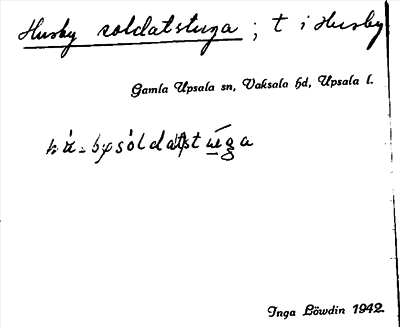 Husby soldatstuga; t i Husby
Gamla Upsala sn, Vaksala hd, Upsala l.
Inga Löwdin 1942.